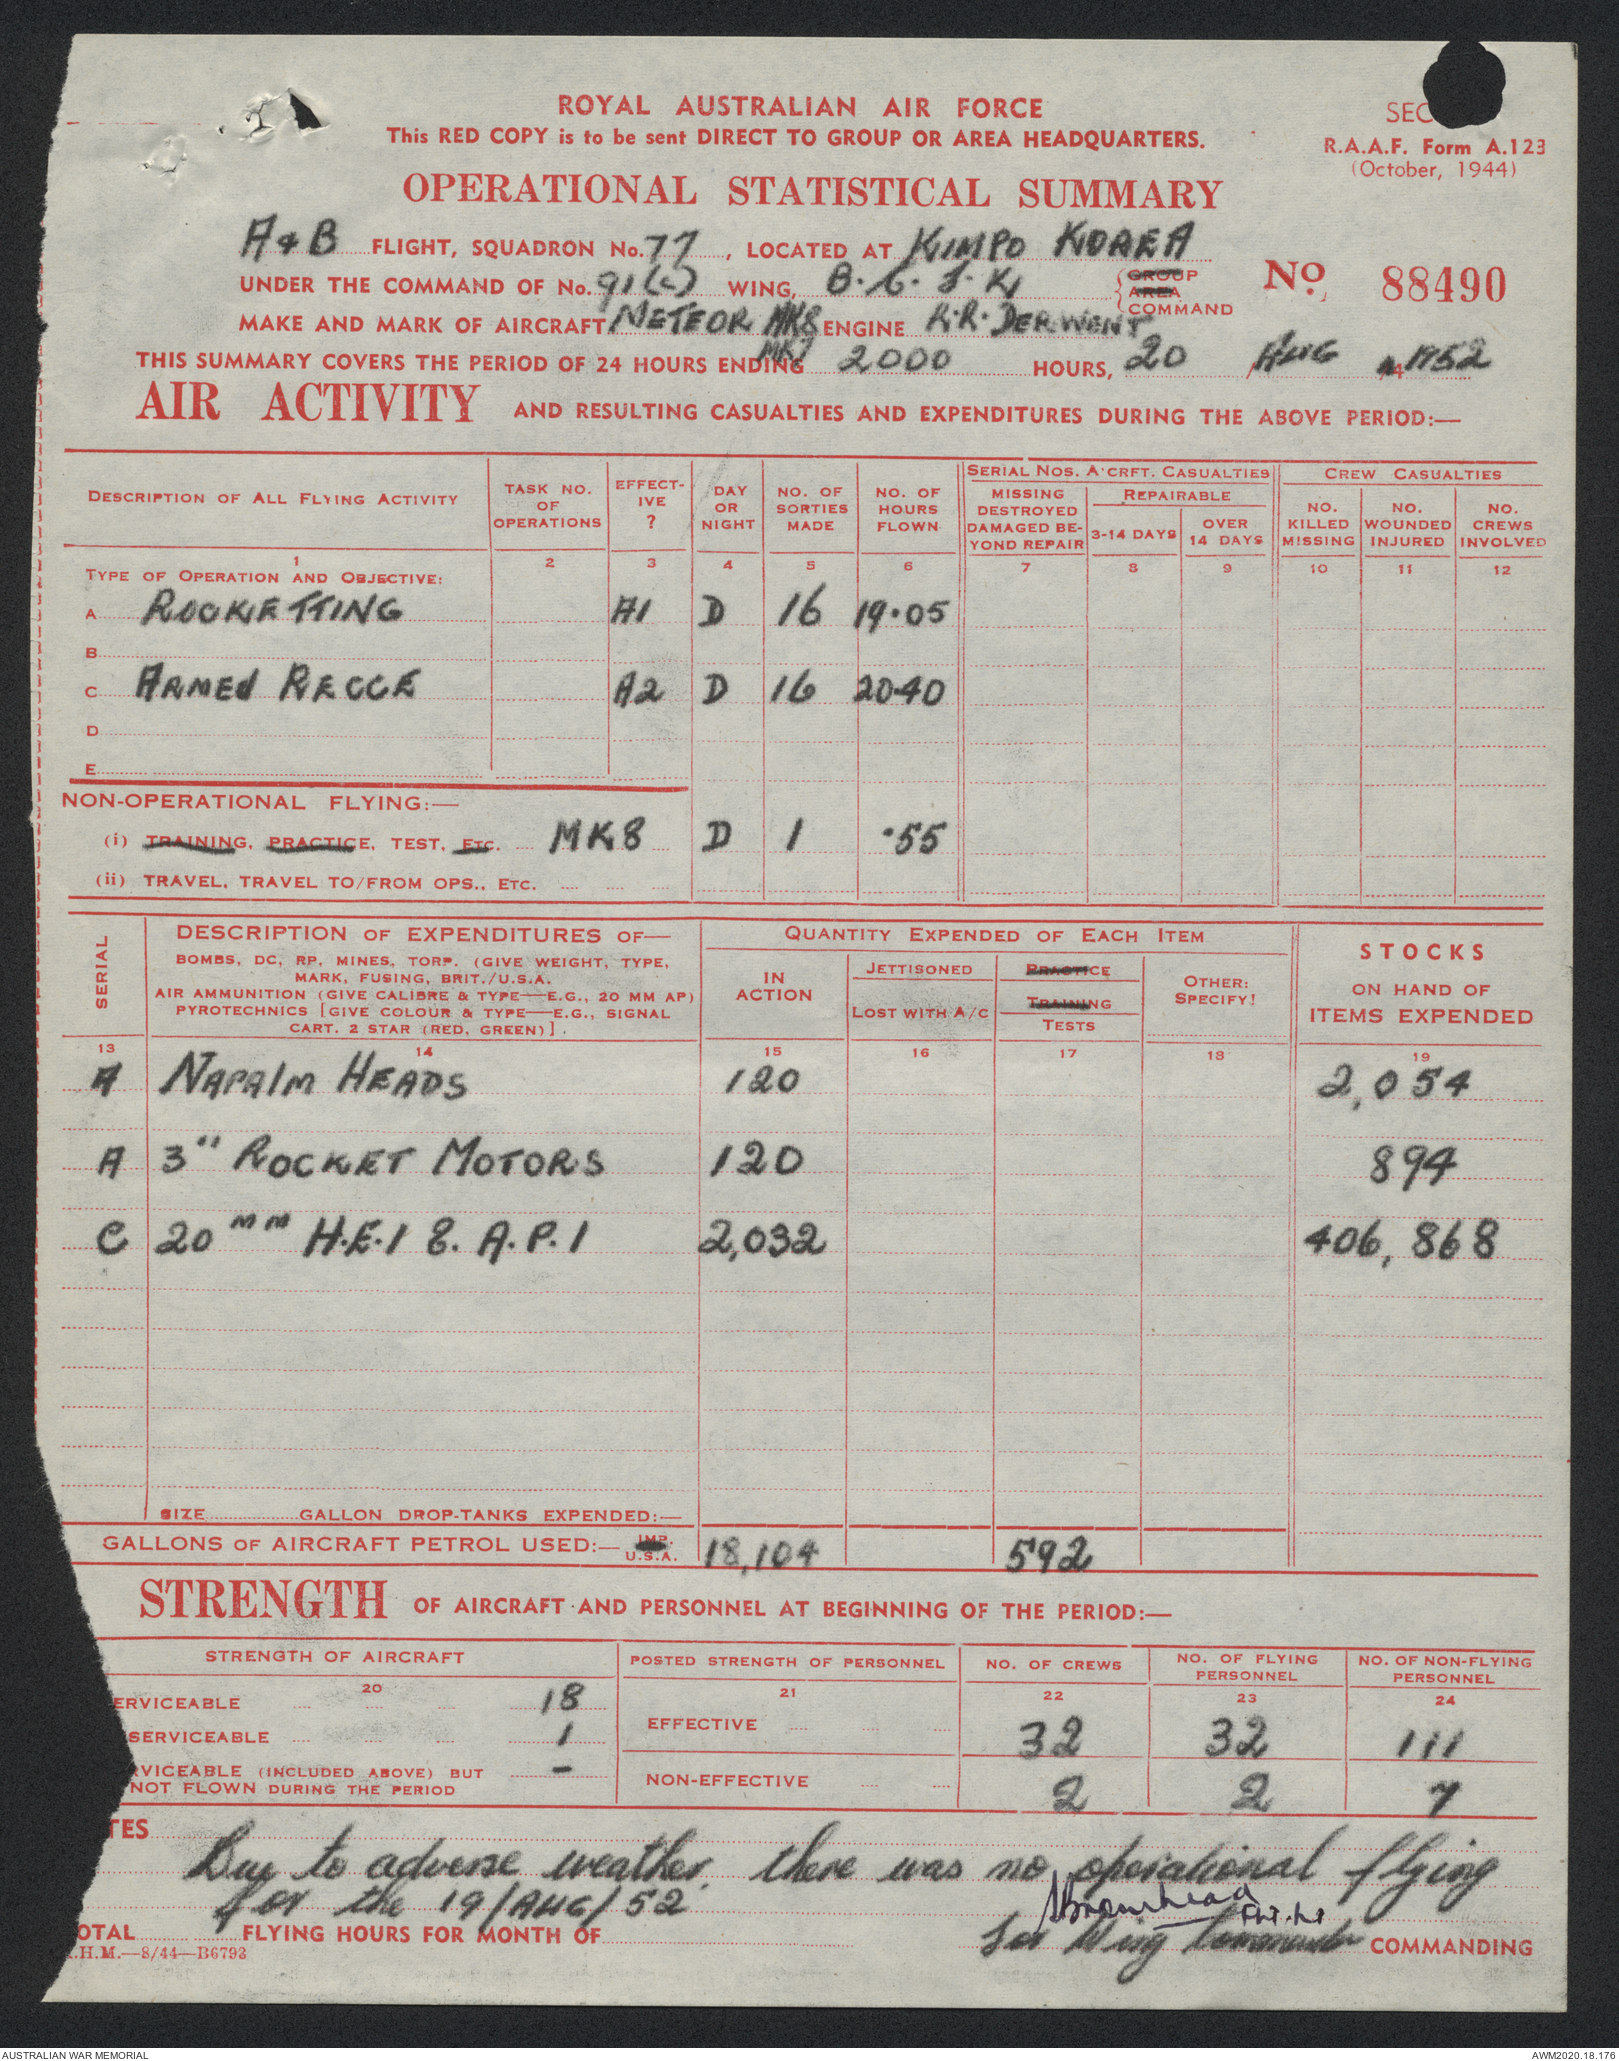 ROYAL AUSTRALIAN AIR FORCE
This RED COPY is to be sent DIRECT TO GROUP OR AREA HEADQUARTERS.
SEC
R.A.A.F. Form A.123
(October, 1944)
OPERATIONAL STATISTICAL SUMMARY
A & B FLIGHT, SQUADRON No. 77, LOCATED AT KIMPO KOREA
UNDER THE COMMAND OF No. 91(c) WING, B.C.J.K. GROUP AREA COMMAND
No. 88490
MAKE AND MARK OF AIRCRAFT METEOR MK8 ENGINE R.R. DERWENT
MK7
THIS SUMMARY COVERS THE PERIOD OF 24 HOURS ENDING 2000 HOURS, 20 / AUG 1952
AIR ACTIVITY AND RESULTING CASUALTIES AND EXPENDITURES DURING THE ABOVE PERIOD:—
DESCRIPTION OF ALL FLYING ACTIVITY
TASK NO. OF OPERATIONS
EFFECTIVE ?
DAY OR NIGHT
NO. OF SORTIES MADE
NO. OF HOURS FLOWN
SERIAL NOS. A'CRFT. CASUALTIES
MISSING DESTROYED DAMAGED BEYOND REPAIR
REPAIRABLE
3-14 DAYS
OVER 14 DAYS
CREW CASUALTIES
NO. KILLED MISSING
NO. WOUNDED INJURED
NO. CREWS INVOLVED
1 2 3 4 5 6 7 8 9 10 11 12
TYPE OF OPERATION AND OBJECTIVE:
A ROCKETTING A1 D 16 19.05
B
C ARMED RECCE A2 D 16 20.40
D
E
NON-OPERATIONAL FLYING:—
(i) TRAINING, PRACTICE, TEST, ETC. MK8 D 1 .55
(ii) TRAVEL, TRAVEL TO/FROM OPS., ETC.
SERIAL
DESCRIPTION OF EXPENDITURES OF—
BOMBS, DC, RP, MINES, TORP. (GIVE WEIGHT, TYPE,
MARK, FUSING, BRIT./U.S.A.
AIR AMMUNITION (GIVE CALIBRE & TYPE—E.G., 20 MM AP)
PYROTECHNICS [GIVE COLOUR & TYPE—E.G., SIGNAL
CART. 2 STAR (RED, GREEN)].
QUANTITY EXPENDED OF EACH ITEM
IN ACTION
JETTISONED
LOST WITH A/C
PRACTICE
TRAINING
TESTS
OTHER: SPECIFY!
STOCKS
ON HAND OF
ITEMS EXPENDED
13 14 15 16 17 18 19
A NAPALM HEADS 120 2,054
A 3" ROCKET MOTORS 120 894
C 20 MM H.E.I & A.P.I 2,032 406,868
SIZE GALLON DROP-TANKS EXPENDED:—
GALLONS OF AIRCRAFT PETROL USED:— IMP. U.S.A. 18,104 592
STRENGTH OF AIRCRAFT AND PERSONNEL AT BEGINNING OF THE PERIOD:—
STRENGTH OF AIRCRAFT
POSTED STRENGTH OF PERSONNEL
NO. OF CREWS
NO. OF FLYING PERSONNEL
NO. OF NON-FLYING PERSONNEL
20 21 22 23 24
ERVICEABLE 18
EFFECTIVE 32 32 111
SERVICEABLE 1
VICEABLE (INCLUDED ABOVE) BUT
NOT FLOWN DURING THE PERIOD -
NON-EFFECTIVE 2 2 7
TES
Due to adverse weather there was no operational flying
for the 19/AUG/52
Bromhead Flt. Lt
OTAL FLYING HOURS FOR MONTH OF
for Wing Commander COMMANDING
.H.M.—8/44—B6793
AUSTRALIAN WAR MEMORIAL
AWM2020.18.176